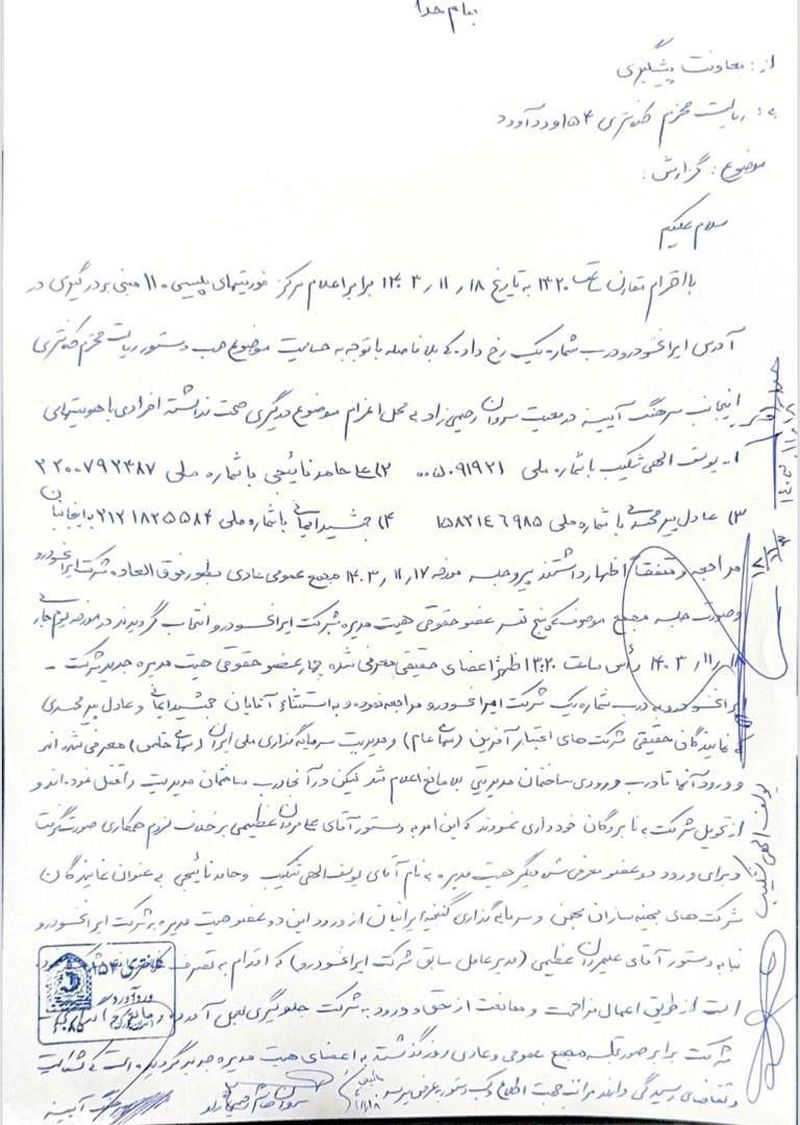 بنام خدا
از: معاونت پیشگیری
به: ریاست محترم کلانتری ۱۵۴ وردآورد
موضوع: گزارش:
سلام علیکم
بااحترام مقارن ساعت ۱۳۲۰ به تاریخ ۱۸ ر ۱۱ ر ۱۴۰۳ برابر اعلام مرکز فوریتهای پلیسی ۱۱۰ مبنی بر درگیری در
آدرس ایرانخودرو درب شماره یک رخ داده که بلافاصله باتوجه به حساسیت موضوع حسب دستور ریاست محترم کلانتری
اینجانب سرهنگ آیینه در معیت سروان رحیمی زاد به محل اعزام موضوع درگیری صحت نداشته افرادی باهویتهای
۱- یوسف الهی شکیب با شماره ملی ۰۰۵۰۹۱۹۲۱ ۲) حامد نائیجی با شماره ملی ۳۲۰۰۷۹۲۴۸۷
۳) عادل پیرمحمدی با شماره ملی ۱۵۸۲۱۴۶۹۸۵ ۴) جمشید ایمانی با شماره ملی ۲۱۲۱۸۲۵۵۸۴ به اینجانبان
مراجعه و متفقاً اظهار داشتند پیرو جلسه مورخه ۱۷ ر ۱۱ ر ۱۴۰۳ مجمع عمومی عادی بطور فوق العاده شرکت ایرانخودرو
و صورت جلسه مجمع موصوف که پنج نفر عضو حقوقی هیت مدیره شرکت ایرانخودرو انتخاب گردیدند در مورخه یوم جاری
۱۸ ر ۱۱ ر ۱۴۰۳ رأس ساعت ۱۳:۲۰ ظهر اعضای حقیقی معرفی شده چهار عضو حقوقی هیت مدیره جدید شرکت -
ایرانخودرو به درب شماره یک شرکت ایرانخودرو مراجعه نموده و به استثناء آقایان جمشید ایمانی و عادل پیرمحمدی
که نمایندگان حقیقی شرکت های اعتبار آفرین (سهامی عام) و مدیریت سرمایه گذاری ملی ایران (سهامی خاص) معرفی شده اند
و ورود آنها تا درب ورودی ساختمان مدیریتی بلامانع اعلام شد لیکن در آنجا درب ساختمان مدیریت را قفل نموده اند و
از تحویل شرکت به نامبردگان خودداری نمودند که این امر به دستور آقای علیمردان عظیمی برخلاف لزوم همکاری صورت گرفت
و برای ورود دو عضو معرفی شده دیگر هیت مدیره به نام آقای یوسف الهی شکیب و حامد نائیجی به عنوان نمایندگان
شرکت های بهینه سازان بهمن و سرمایه گذاری گنجینه ایرانیان از ورود این دو عضو هیت مدیره به شرکت ایرانخودرو
بنا به دستور آقای علیمردان عظیمی (مدیر عامل سابق شرکت ایرانخودرو) که اقدام به تصرف
است از طریق اعمال مزاحمت و ممانعت از حق و ورود به شرکت جلوگیری بعمل آمده و مانع
شرکت برابر صورتجلسه مجمع عمومی و عادی روز گذشته به اعضای هیت مدیره جدید گردیده است که شکایت
و تقاضای رسیدگی دارند مراتب جهت اطلاع و کسب دستور بعرض میرسد
سرهنگ آیینه
یوسف الهی شکیب
کلانتری ۱۵۴
وردآورد